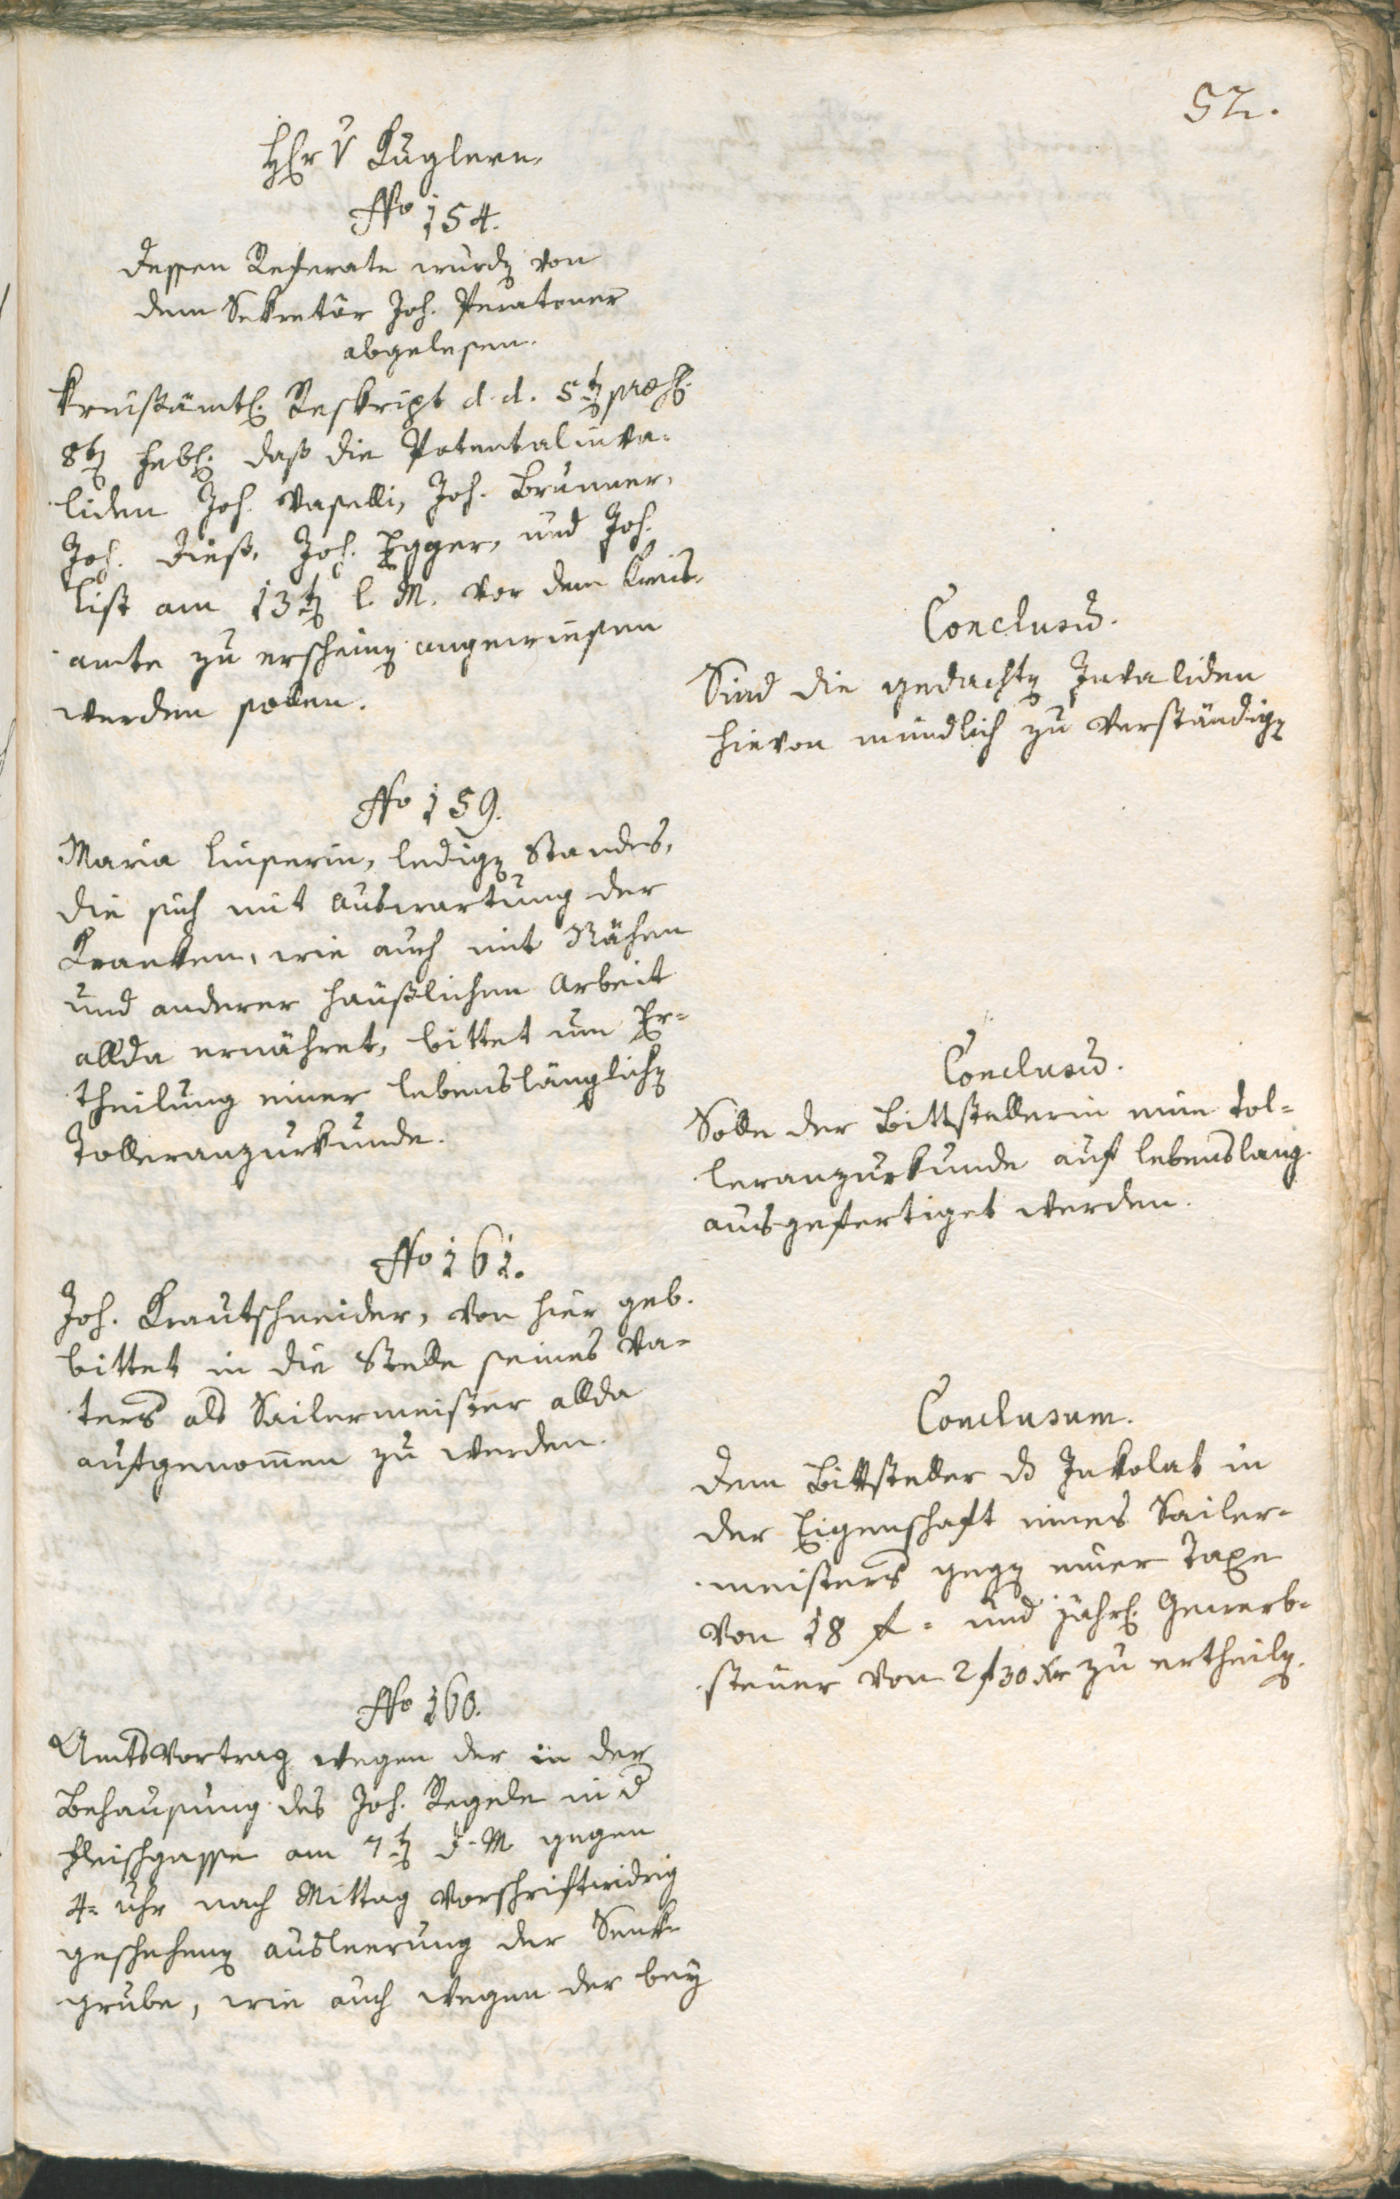 52.
Hr v Kuglern,
No 154.
dessen Referate wurdn von
dem Sekretär Joh. Peratoner
abgelesen.
Kreißämtl. Reskript d. d. 5tn præs.
8tn Febl. daß die Patentalinva-
liden Joh. Vaselli, Joh. Brunner,
Joh. Dieß, Joh. Egger, und Joh.
List am 13tn l. M. vor dem Kreis-
amte zu erscheinn angewiesen
werden sollen.
Conclusum.
Sind die gedachtn Invaliden
hievon mündlich zu verständign
No 159.
Maria Linserin, ledign Standes,
die sich mit Auswartung der
Kranken, wie auch mit Nähen
und anderer häußlichen Arbeit
allda ernähret, bittet um Er-
theilung einer lebenslänglichn
Tolleranzurkunde.
Conclusum.
Solle der Bittstellerin eine Tol-
leranzurkunde auf lebenslang
ausgefertiget werden.
No 161.
Joh. Krautschneider, von hier geb.
bittet in die Stelle seines Va-
ters als Sailermeister allda
aufgenommen zu werden.
Conclusum.
Dem Bittsteller ds Inkolat in
der Eigenschaft eines Sailer-
meisters gegn einer Taxe
von 18 f. und jährl. Gewerb-
steuer von 2 f 30 Kr zu ertheiln.
No 160.
Amts Vortrag wegen der in der
Behausung des Joh. Regele in d
Fleischgasse am 7tn d. M. gegen
4 Uhr nach Mittag vorschriftwidrig
geschehenn Ausleerung der Senk-
grube, wie auch wegen der bey